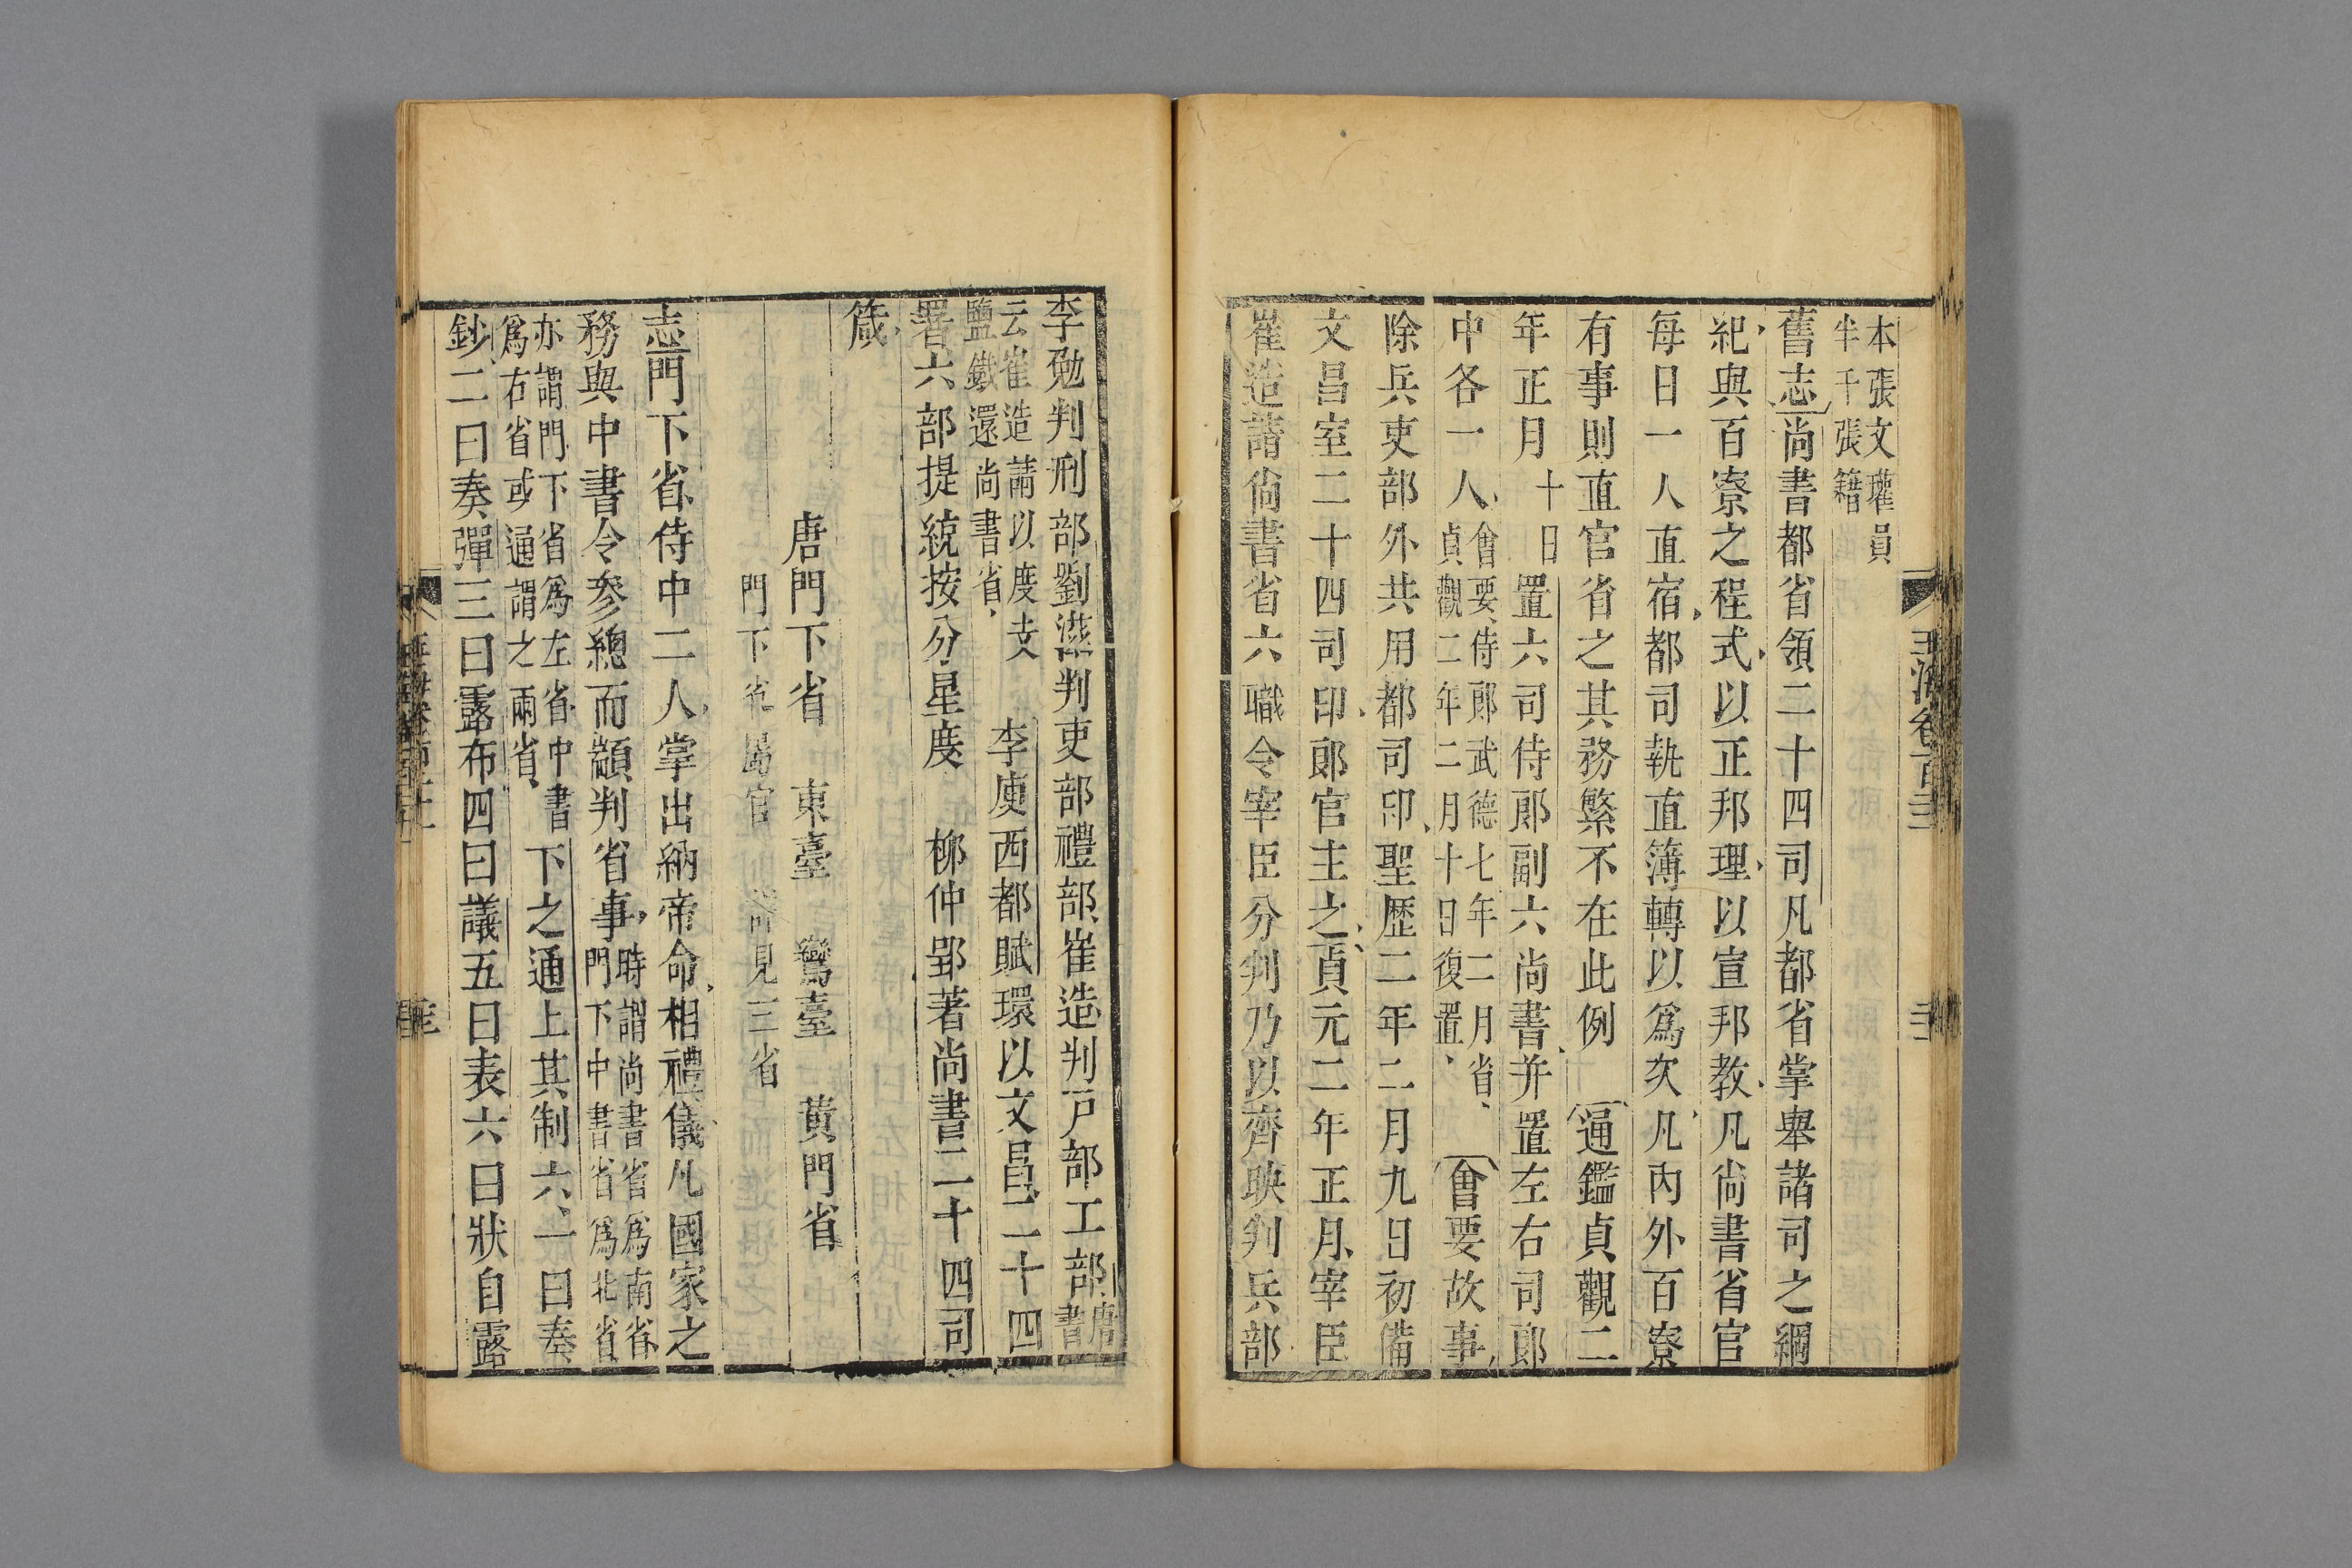 本張文瓘員
半千張籍
舊志尚書都省領二十四司凡都省掌舉諸司之綱
紀與百寮之程式以正邦理以宣邦教凡尚書省官
每日一人直宿都司執直簿轉以爲次凡內外百寮
有事則直官省之其務繁不在此例 通鑑貞觀二
年正月十日置六司侍郎副六尚書并置左右司郎
中各一人會要侍郎武德七年二月省貞觀二年二月十日復置 會要故事
除兵吏部外共用都司印聖歷二年二月九日初備
文昌室二十四司印郎官主之貞元二年正月宰臣
崔造請尚書省六職令宰臣分判乃以齊映判兵部
玉海卷百二十一
李勉判刑部劉滋判吏部禮部崔造判戶部工部唐書
云崔造請以度支鹽鐵還尚書省 李庾西都賦環以文昌二十四
署六部提統按分星度 柳仲郢著尚書二十四司
箴
唐門下省 東臺 鸞臺 黃門省
門下省屬官 詳見三省
志門下省侍中二人掌出納帝命相禮儀凡國家之
務與中書令參總而顓判省事時謂尚書省爲南省門下中書省爲北省
亦謂門下省爲左省中書爲右省或通謂之兩省 下之通上其制六一曰奏
鈔二曰奏彈三曰露布四曰議五曰表六曰狀自露